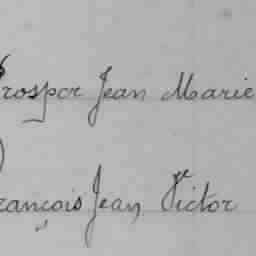 Prosper Jean Marie
François Jean Victor